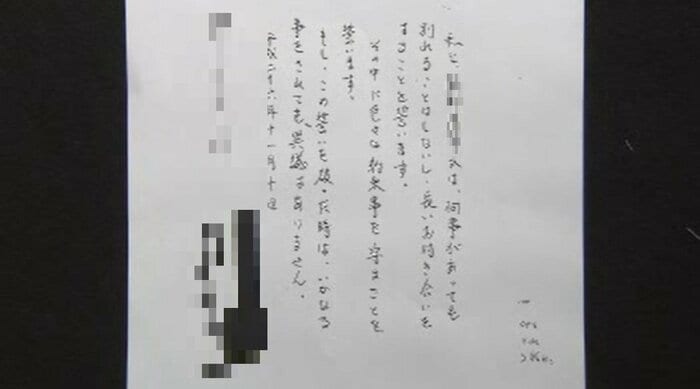 私と、は、何事があっても
別れることはしないし、長いお付き合いを
することを誓います。
その中に色々な約束事を守ることを
誓います。
もし、この誓いを破った時は、いかなる
事をされても異議はありません。
平成二十六年十一月十日